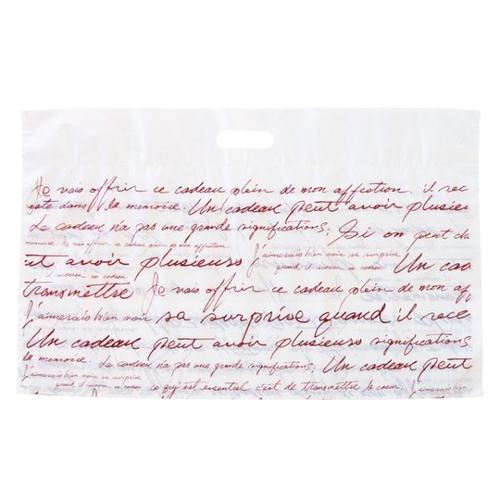 Je vais offrir ce cadeau plein de mon affection. il rec
ste dans la memoire. Un cadeau peut avoir plusieu
Le cadeau n'a pas une grande significations, Si on peut ch
memoire. Je vais offrir ce cadeau plein de mon affection J'aimerais bien voir sa surprise
ut avoir plusieurs quand il recevra ce cadeau Un cad
transmettre Je vais offrir ce cadeau plein de mon aff
J'aimerais bien voir sa surprise quand il rece
Un cadeau peut avoir plusieurs significations
la memoire. Le cadeau n'a pas une grande significations, Un cadeau peut
J'aimerais bien voir sa surprise
quand il recevra ce cadeau ce qui est essentiel c'est de transmettre le coeur. J'aimerais bien